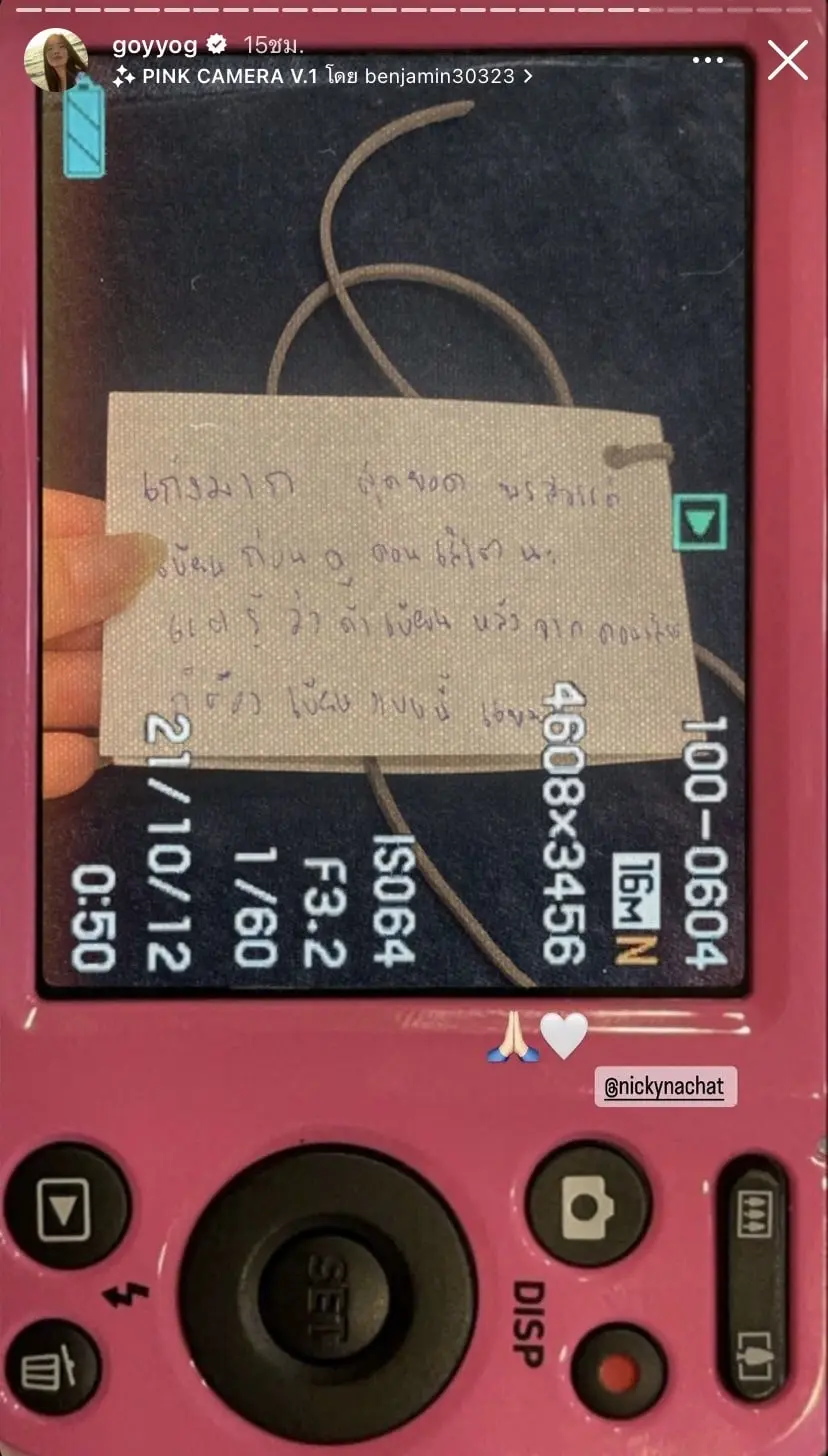 goyyog 15ชม.
PINK CAMERA V.1 โดย benjamin30323 >
เก่งมาก สุดยอด พรสวรรค์
เขียน ก่อน ดู ตอน นะ
แต่ รู้ ว่า ถ้า เขียน หลัง จาก ตอน
ก็ต้อง เขียน แบบนี้
100-0604
16M N
4608x3456
ISO64
F3.2
1/60
21/10/12
0:50
@nickynachat
SET
DISP